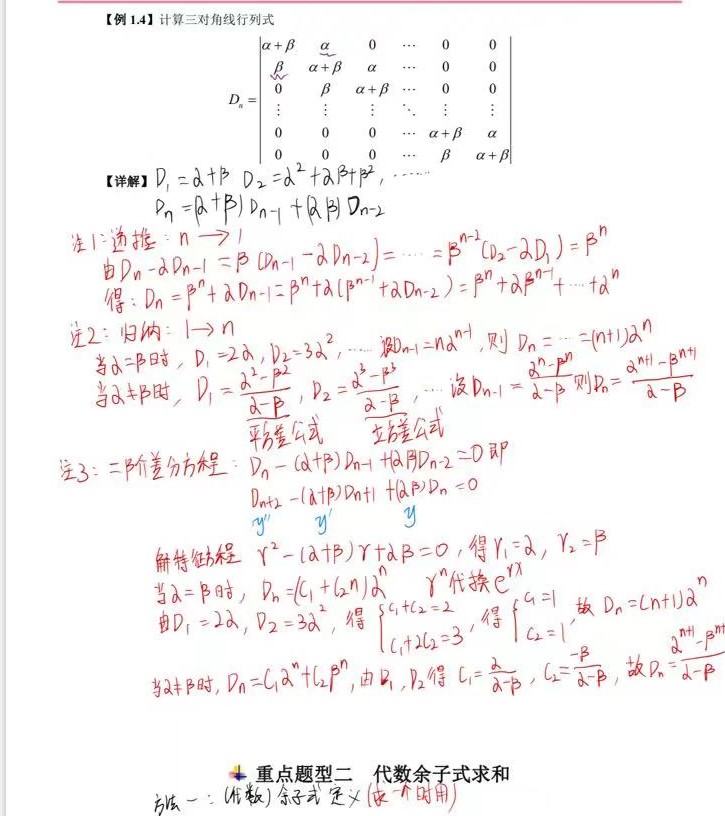 【例 1.4】计算三对角线行列式
α+β α 0 ⋯ 0 0
β α+β α ⋯ 0 0
0 β α+β ⋯ 0 0
Dₙ = ⋮ ⋮ ⋮ ⋱ ⋮ ⋮
0 0 0 ⋯ α+β α
0 0 0 ⋯ β α+β
【详解】D₁=α+β D₂=α²+αβ+β², ……
Dₙ=(α+β)Dₙ₋₁+(αβ)Dₙ₋₂
注1:递推: n→1
由Dₙ-αDₙ₋₁=β(Dₙ₋₁-αDₙ₋₂)=⋯=βⁿ⁻²(D₂-αD₁)=βⁿ
得:Dₙ=βⁿ+αDₙ₋₁=βⁿ+α(βⁿ⁻¹+αDₙ₋₂)=βⁿ+αβⁿ⁻¹+⋯+αⁿ
注2:归纳:1→n
当α=β时, D₁=2α, D₂=3α², ⋯ 设Dₙ₋₁=nαⁿ⁻¹, 则 Dₙ=⋯=(n+1)αⁿ
当α≠β时, D₁=(α²-β²)/(α-β), D₂=(α³-β³)/(α-β), ⋯ 设Dₙ₋₁=(αⁿ-βⁿ)/(α-β) 则Dₙ=(αⁿ⁺¹-βⁿ⁺¹)/(α-β)
平方差公式 立方差公式
注3:二阶差分方程: Dₙ-(α+β)Dₙ₋₁+(αβ)Dₙ₋₂=0 即
Dₙ₊₂-(α+β)Dₙ₊₁+(αβ)Dₙ=0
y'' y' y
解特征方程 r²-(α+β)r+αβ=0, 得r₁=α, r₂=β
当α=β时, Dₙ=(C₁+C₂n)αⁿ rⁿ代换eʳˣ
由D₁=2α, D₂=3α², 得 {C₁+C₂=2 C₁+2C₂=3, 得 {C₁=1 C₂=1, 故 Dₙ=(n+1)αⁿ
当α≠β时, Dₙ=C₁αⁿ+C₂βⁿ, 由D₁, D₂得 C₁=α/(α-β), C₂=-β/(α-β), 故Dₙ=(αⁿ⁺¹-βⁿ⁺¹)/(α-β)
重点题型二 代数余子式求和
方法一:(代数)余子式定义(求一个时用)